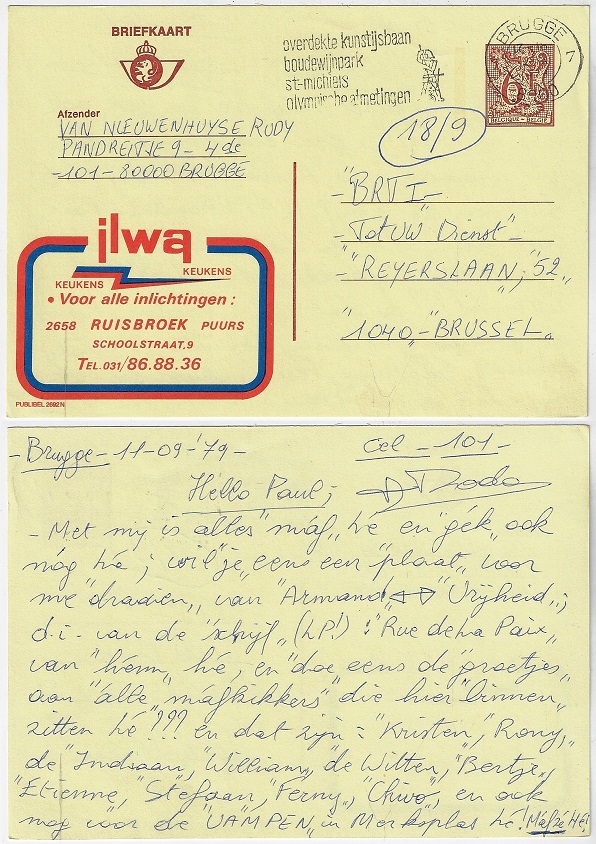 BRIEFKAART
overdekte kunstijsbaan
boudewijnpark
st-michiels
olympische afmetingen
BRUGGE
7
6F
BELGIQUE - BELGIË
Afzender
VAN NIEUWENHUYSE RUDY
PANDREITJE 9 - 4de
-101 - 80000 BRUGGE
18/9
-"BRT I"-
-"TotUW Dienst"-
-"REYERSLAAN, "52"
"1040"-"BRUSSEL"
ilwa
KEUKENS
KEUKENS
• Voor alle inlichtingen :
2658 RUISBROEK PUURS
SCHOOLSTRAAT,9
TEL.031/86.88.36
PUBLIBEL 2692N
- Brugge - 11-09-'79 -
Cel - 101 -
Hello Paul;
Dodo
- Met mij is alles "máf" hé en "gék" ook
nóg hé; wil "je" eens een "plaat" voor
me "draaien" van "Armand" "Vrijheid";
d.i. van de "schijf" (LP!) : "Rue de La Paix"
van "hém" hé, en "doe eens de groetjes"
aan "álle" máfkikkers" die hier "binnen"
zitten hé"??? en dat zijn : "Kristen", Rony,"
de "Indiaan, "William," de Witten, "Bertje,"
"Etienne," Stefaan," Ferny," Chivo," en ook
nog voor de "VAMPEN" in Merksplas hé! Máfzé Hé!